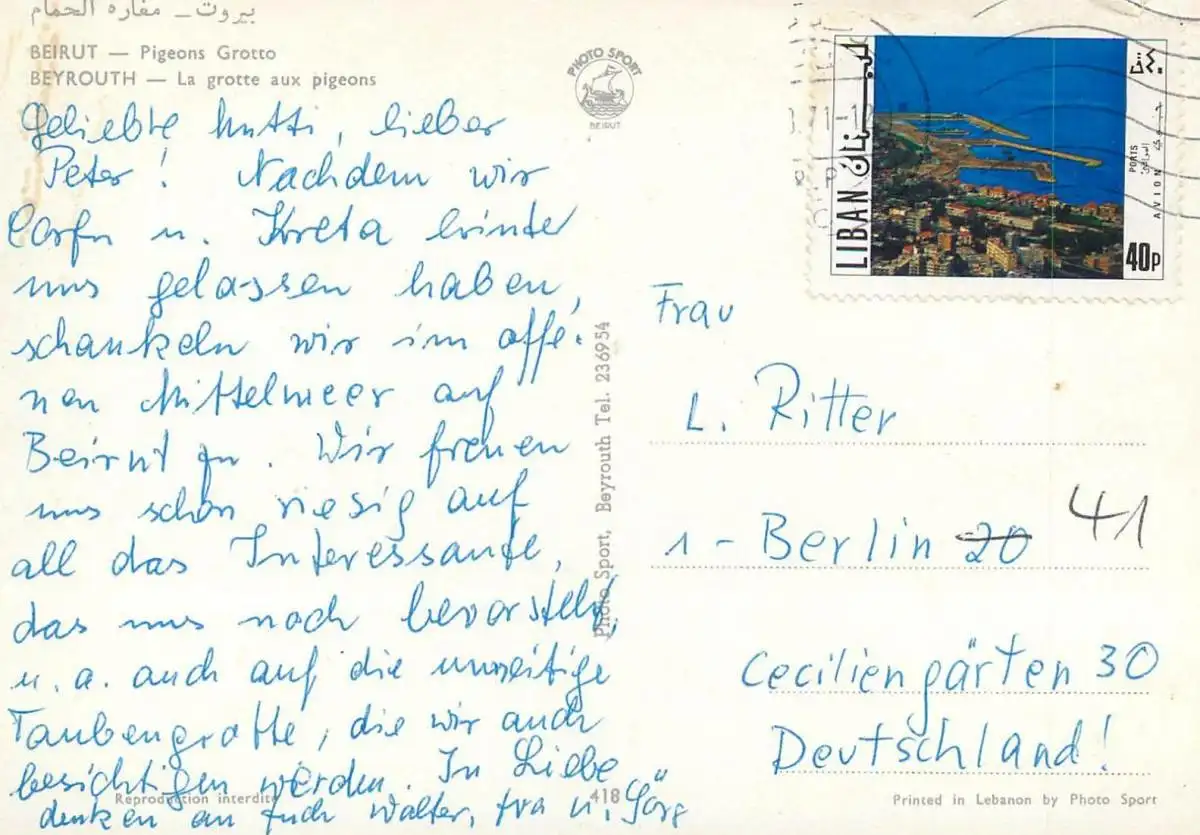 بيروت – مغارة الحمام
BEIRUT — Pigeons Grotto
BEYROUTH — La grotte aux pigeons
PHOTO SPORT
BEIRUT
Geliebte Mutti, lieber
Peter! Nachdem wir
Corfu u. Kreta hinter
uns gelassen haben,
schaukeln wir im offe-
nen Mittelmeer auf
Beirut zu. Wir freuen
uns schon riesig auf
all das Interessante,
das uns noch bevorsteht,
u. a. auch auf die umseitige
Taubengrotte, die wir auch
besichtigen werden. In Liebe
denken an Euch Walter, u. Jörg
Reproduction interdite
418
Photo Sport, Beyrouth Tel. 236954
لبنان
LIBAN
PORTS
AVION
40P
Frau
L. Ritter
1 - Berlin 20 41
Ceciliengärten 30
Deutschland!
Printed in Lebanon by Photo Sport